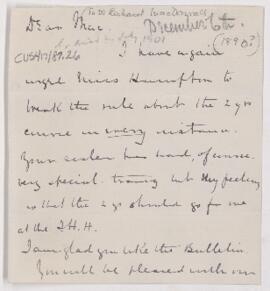 (To W. Richard MacDougall)
Dear Mac.
December 6th.
(1890?)
July 1901
CUS417/89.26
I have again
urged Miss Hampton to
break the rule about the 2 yrs
course in every instance.
Your sister has had, of course,
very special training but they
is that the 2 yr should go for one
at the J. H. H.
I am glad you like the Bulletin.
You will be pleased with our